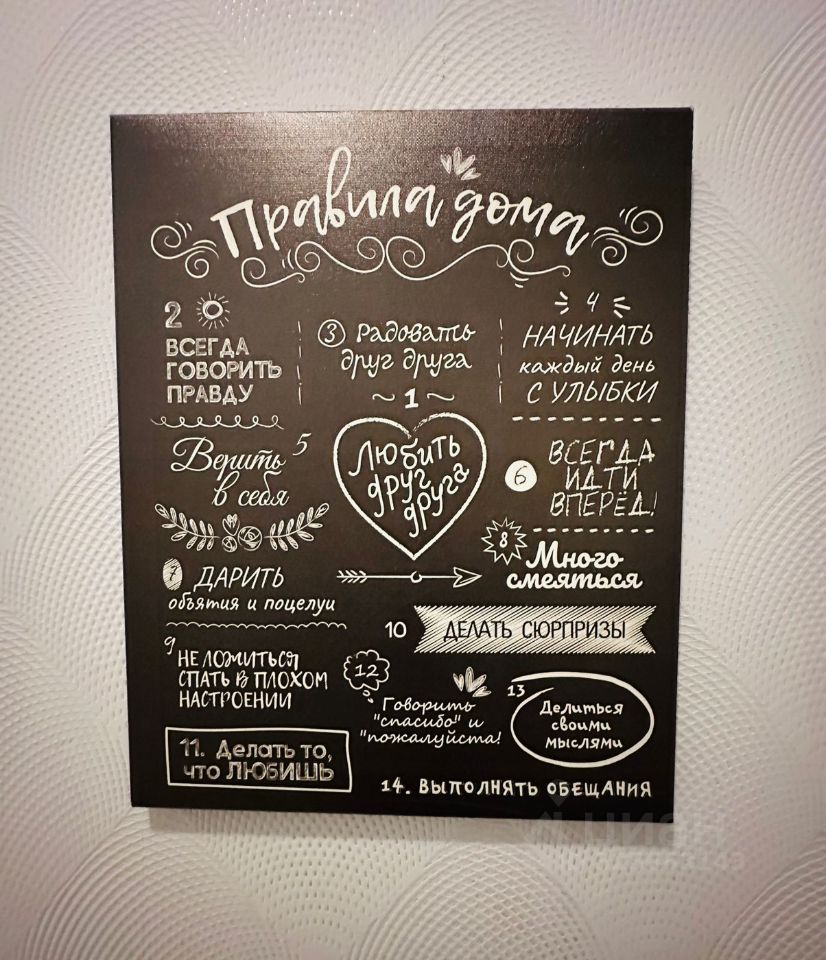 Правила дома
2
ВСЕГДА
ГОВОРИТЬ
ПРАВДУ
3 Радовать
друг друга
4
НАЧИНАТЬ
каждый день
С УЛЫБКИ
1
Любить
друг
друга
5
Верить
в себя
6
ВСЕГДА
ИДТИ
ВПЕРЁД!
7 ДАРИТЬ
объятия и поцелуи
8
Много
смеяться
9
НЕ ЛОЖИТЬСЯ
СПАТЬ В ПЛОХОМ
НАСТРОЕНИИ
10 ДЕЛАТЬ СЮРПРИЗЫ
12
Говорить
"спасибо" и
"пожалуйста!
13
Делиться
своими
мыслями
11. Делать то,
что ЛЮБИШЬ
14. ВЫПОЛНЯТЬ ОБЕЩАНИЯ
ЦИАН